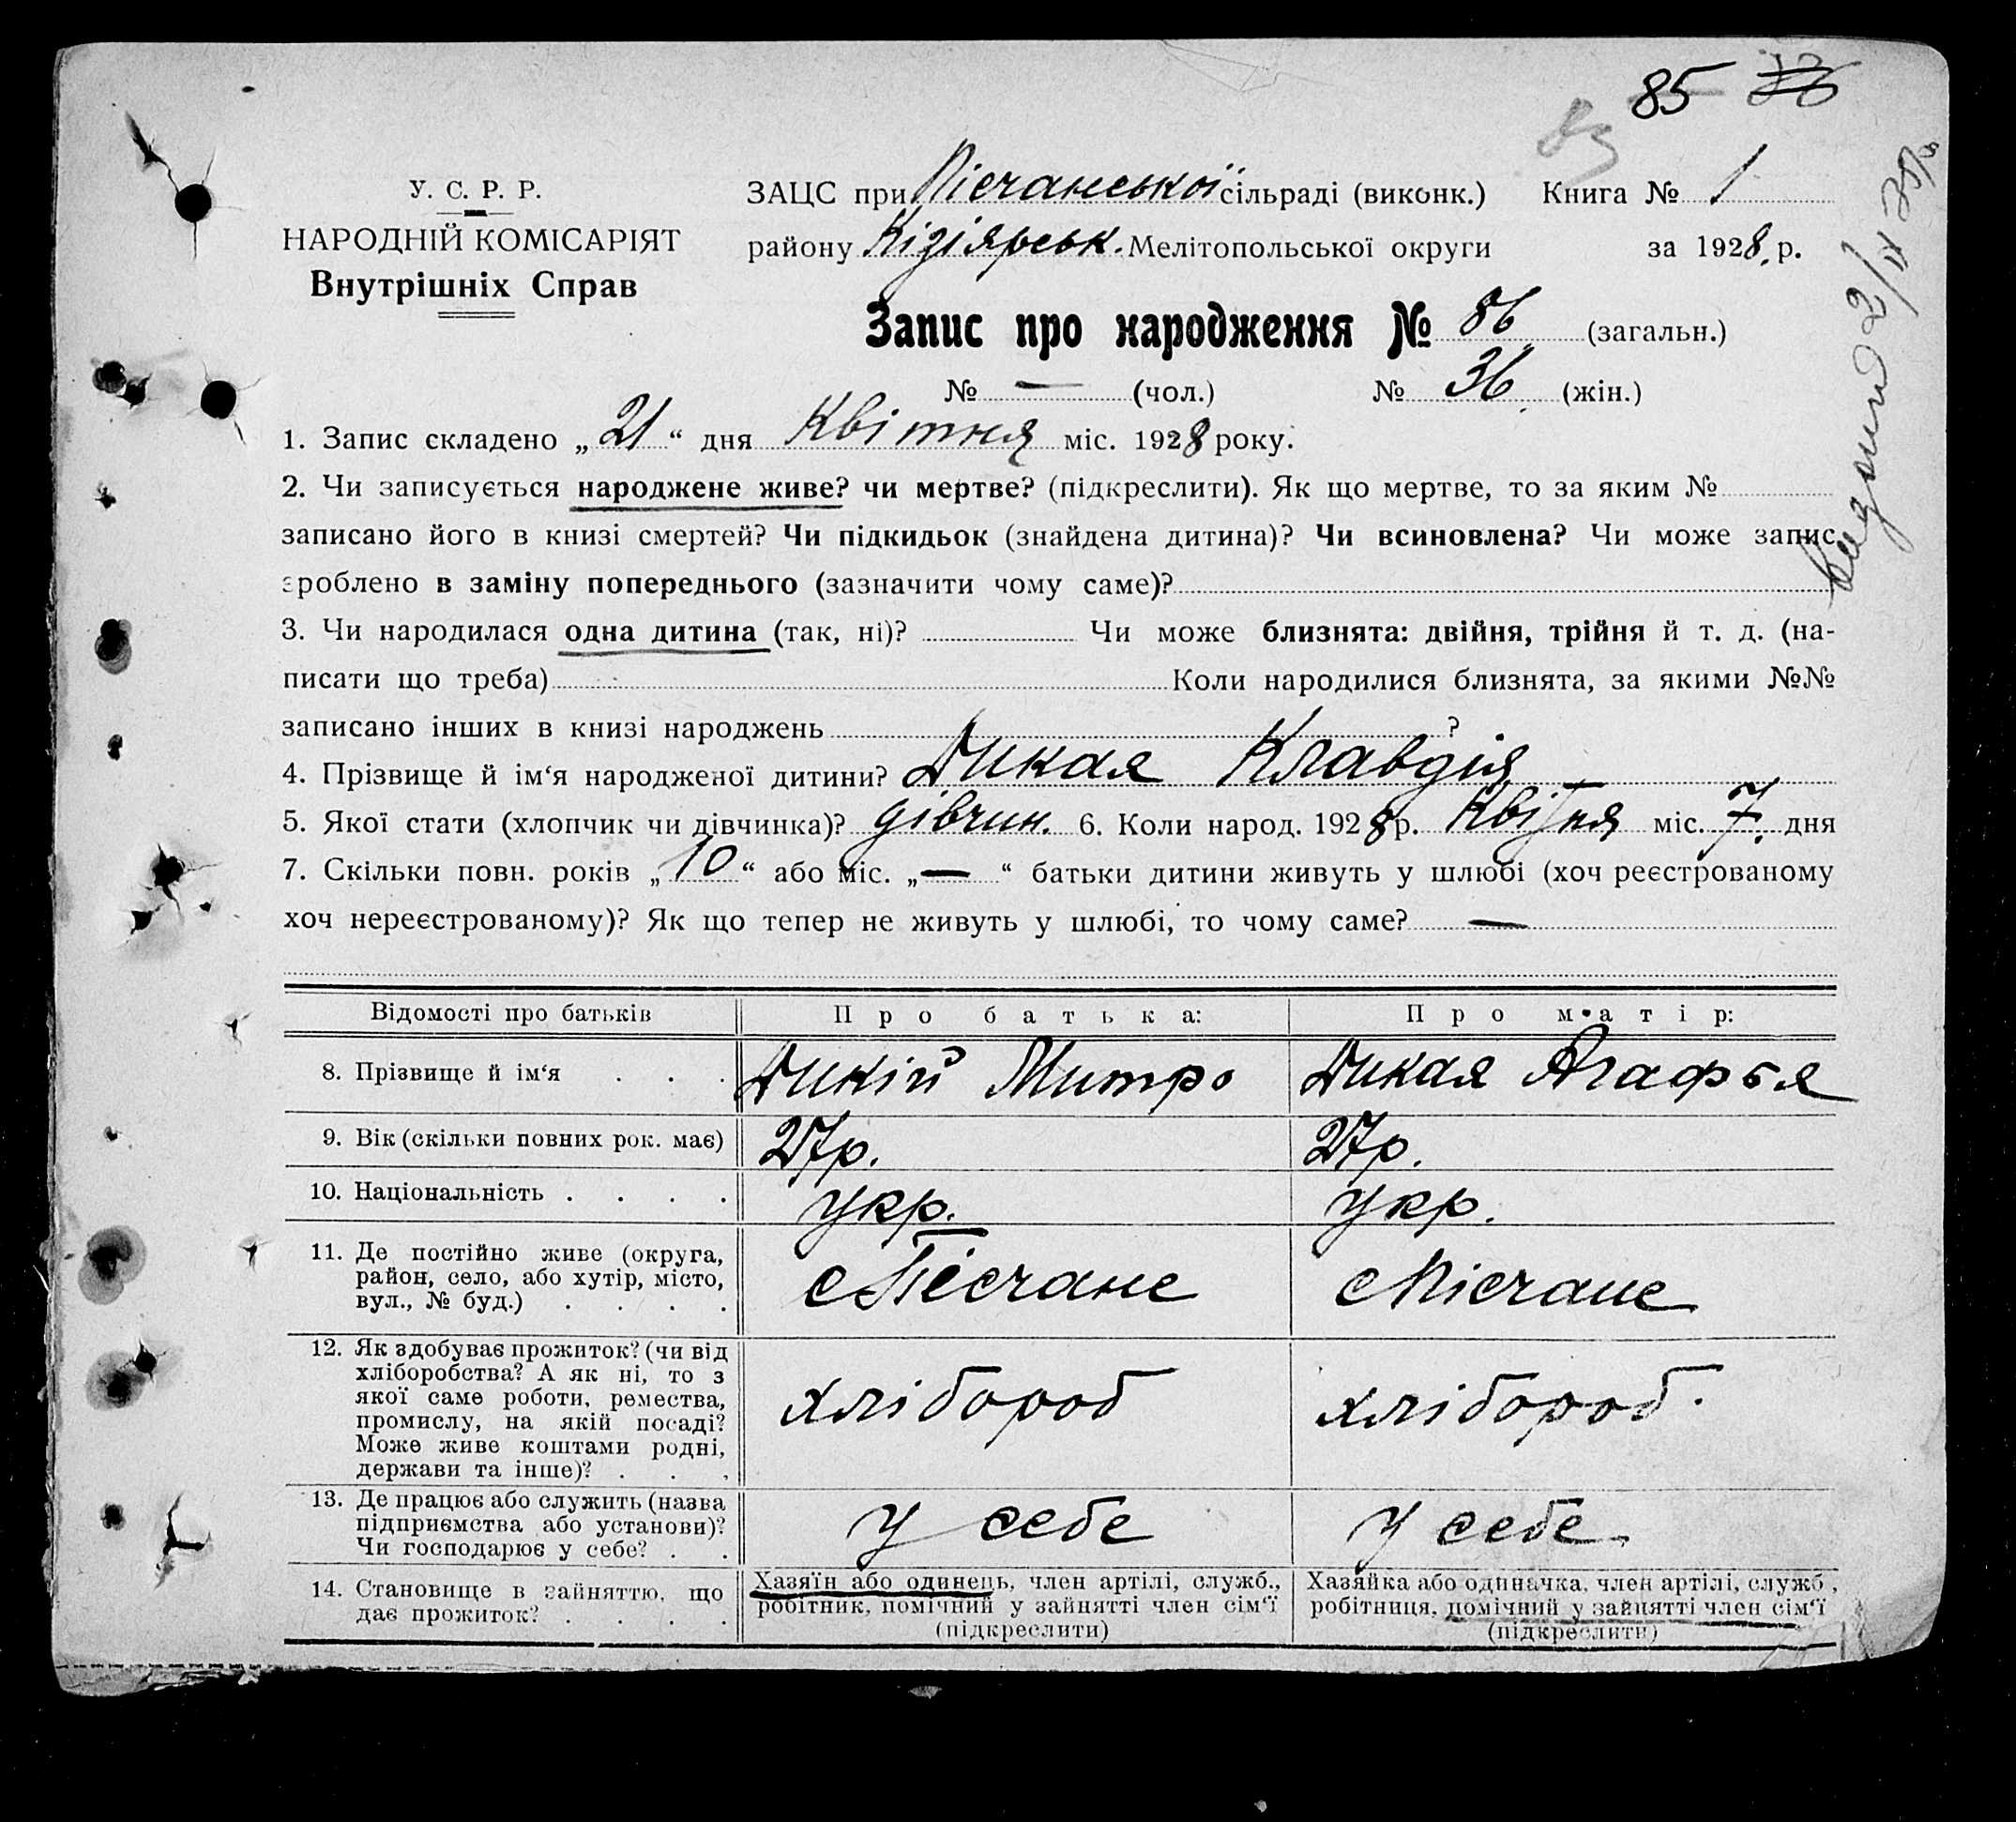 85 86
83
У. С. Р. Р.
НАРОДНІЙ КОМІСАРІЯТ
Внутрішніх Справ
ЗАЦС при Пісчанської сільраді (виконк.) Книга № 1
району Кізіярськ. Мелітопольської округи за 1928. р.
Запис про народження № 86 (загальн.)
№ — (чол.) № 36 (жін.)
1. Запис складено „21“ дня Квітня міс. 1928 року.
2. Чи записується народжене живе? чи мертве? (підкреслити). Як що мертве, то за яким №
записано його в книзі смертей? Чи підкидьок (знайдена дитина)? Чи всиновлена? Чи може запис
зроблено в заміну попереднього (зазначити чому саме)?
3. Чи народилася одна дитина (так, ні)? Чи може близнята: двійня, трійня й т. д. (на-
писати що треба) Коли народилися близнята, за якими №№
записано інших в книзі народжень ?
4. Прізвище й ім‘я народженої дитини? Дикая Клавдія
5. Якої стати (хлопчик чи дівчинка)? дівчин. 6. Коли народ. 1928 р. Квітня міс. 7. дня
7. Скільки повн. років „10“ або міс. „—“ батьки дитини живуть у шлюбі (хоч реєстрованому
хоч нереєстрованому)? Як що тепер не живуть у шлюбі, то чому саме? —
Відомості про батьків Про батька: Про матір:
8. Прізвище й ім‘я . . . Дикій Митро Дикая Агафья
9. Вік (скільки повних рок. має) 27р. 27р.
10. Національність . . . . укр. укр.
11. Де постійно живе (округа,
район, село, або хутір, місто,
вул., № буд.) . . . .
с Пісчане с Пісчане
12. Як здобуває прожиток? (чи від
хліборобства? А як ні, то з
якої саме роботи, ремества,
промислу, на якій посаді?
Може живе коштами родні,
держави та інше)? . . .
хлібороб хлібороб.
13. Де працює або служить (назва
підприємства або установи)?
Чи господарює у себе? . .
у себе у себе
14. Становище в зайняттю, що
дає прожиток? . . . .
Хазяїн або одинець, член артілі, служб.,
робітник, помічний у зайнятті член сім‘ї
(підкреслити)
Хазяйка або одиначка, член артілі, служб.,
робітниця, помічний у зайнятті член сім‘ї
(підкреслити)